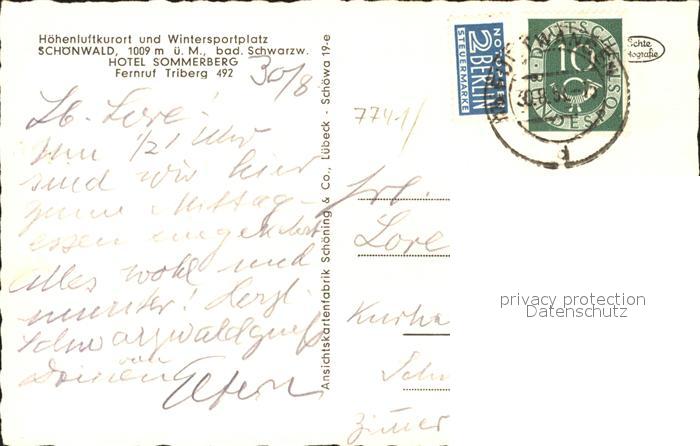 Höhenluftkurort und Wintersportplatz
SCHÖNWALD, 1009 m ü. M., bad. Schwarzw.
HOTEL SOMMERBERG
Fernruf Triberg 492
30/8
Lb. Lore!
Um 1/21 Uhr
sind wir hier
zum Mittag-
essen eingekehrt
Alles wohl und
munter! Herzl.
Schwarzwaldgrüße
von
Deinen Eltern
Ansichtskartenfabrik Schöning & Co., Lübeck - Schöwa 19-e
NOTOPFER
2 BERLIN
STEUERMARKE
DEUTSCHE
10
BUNDESPOST
Echte
7741/
Frl.
Lore
Kurha
Schw
Zimmer
privacy protection
Datenschutz